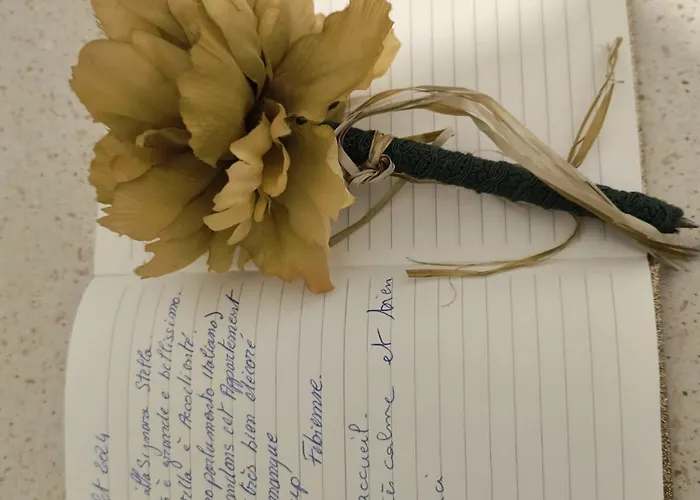 et 2024
alla Signora Stella
è grande e bellissimo.
rilla è Accoclienté.
no parlamendo italiano)
andons cet Appartement
très bien décoré
manque
Fabienne.
accueil.
ès calme et bien
ci